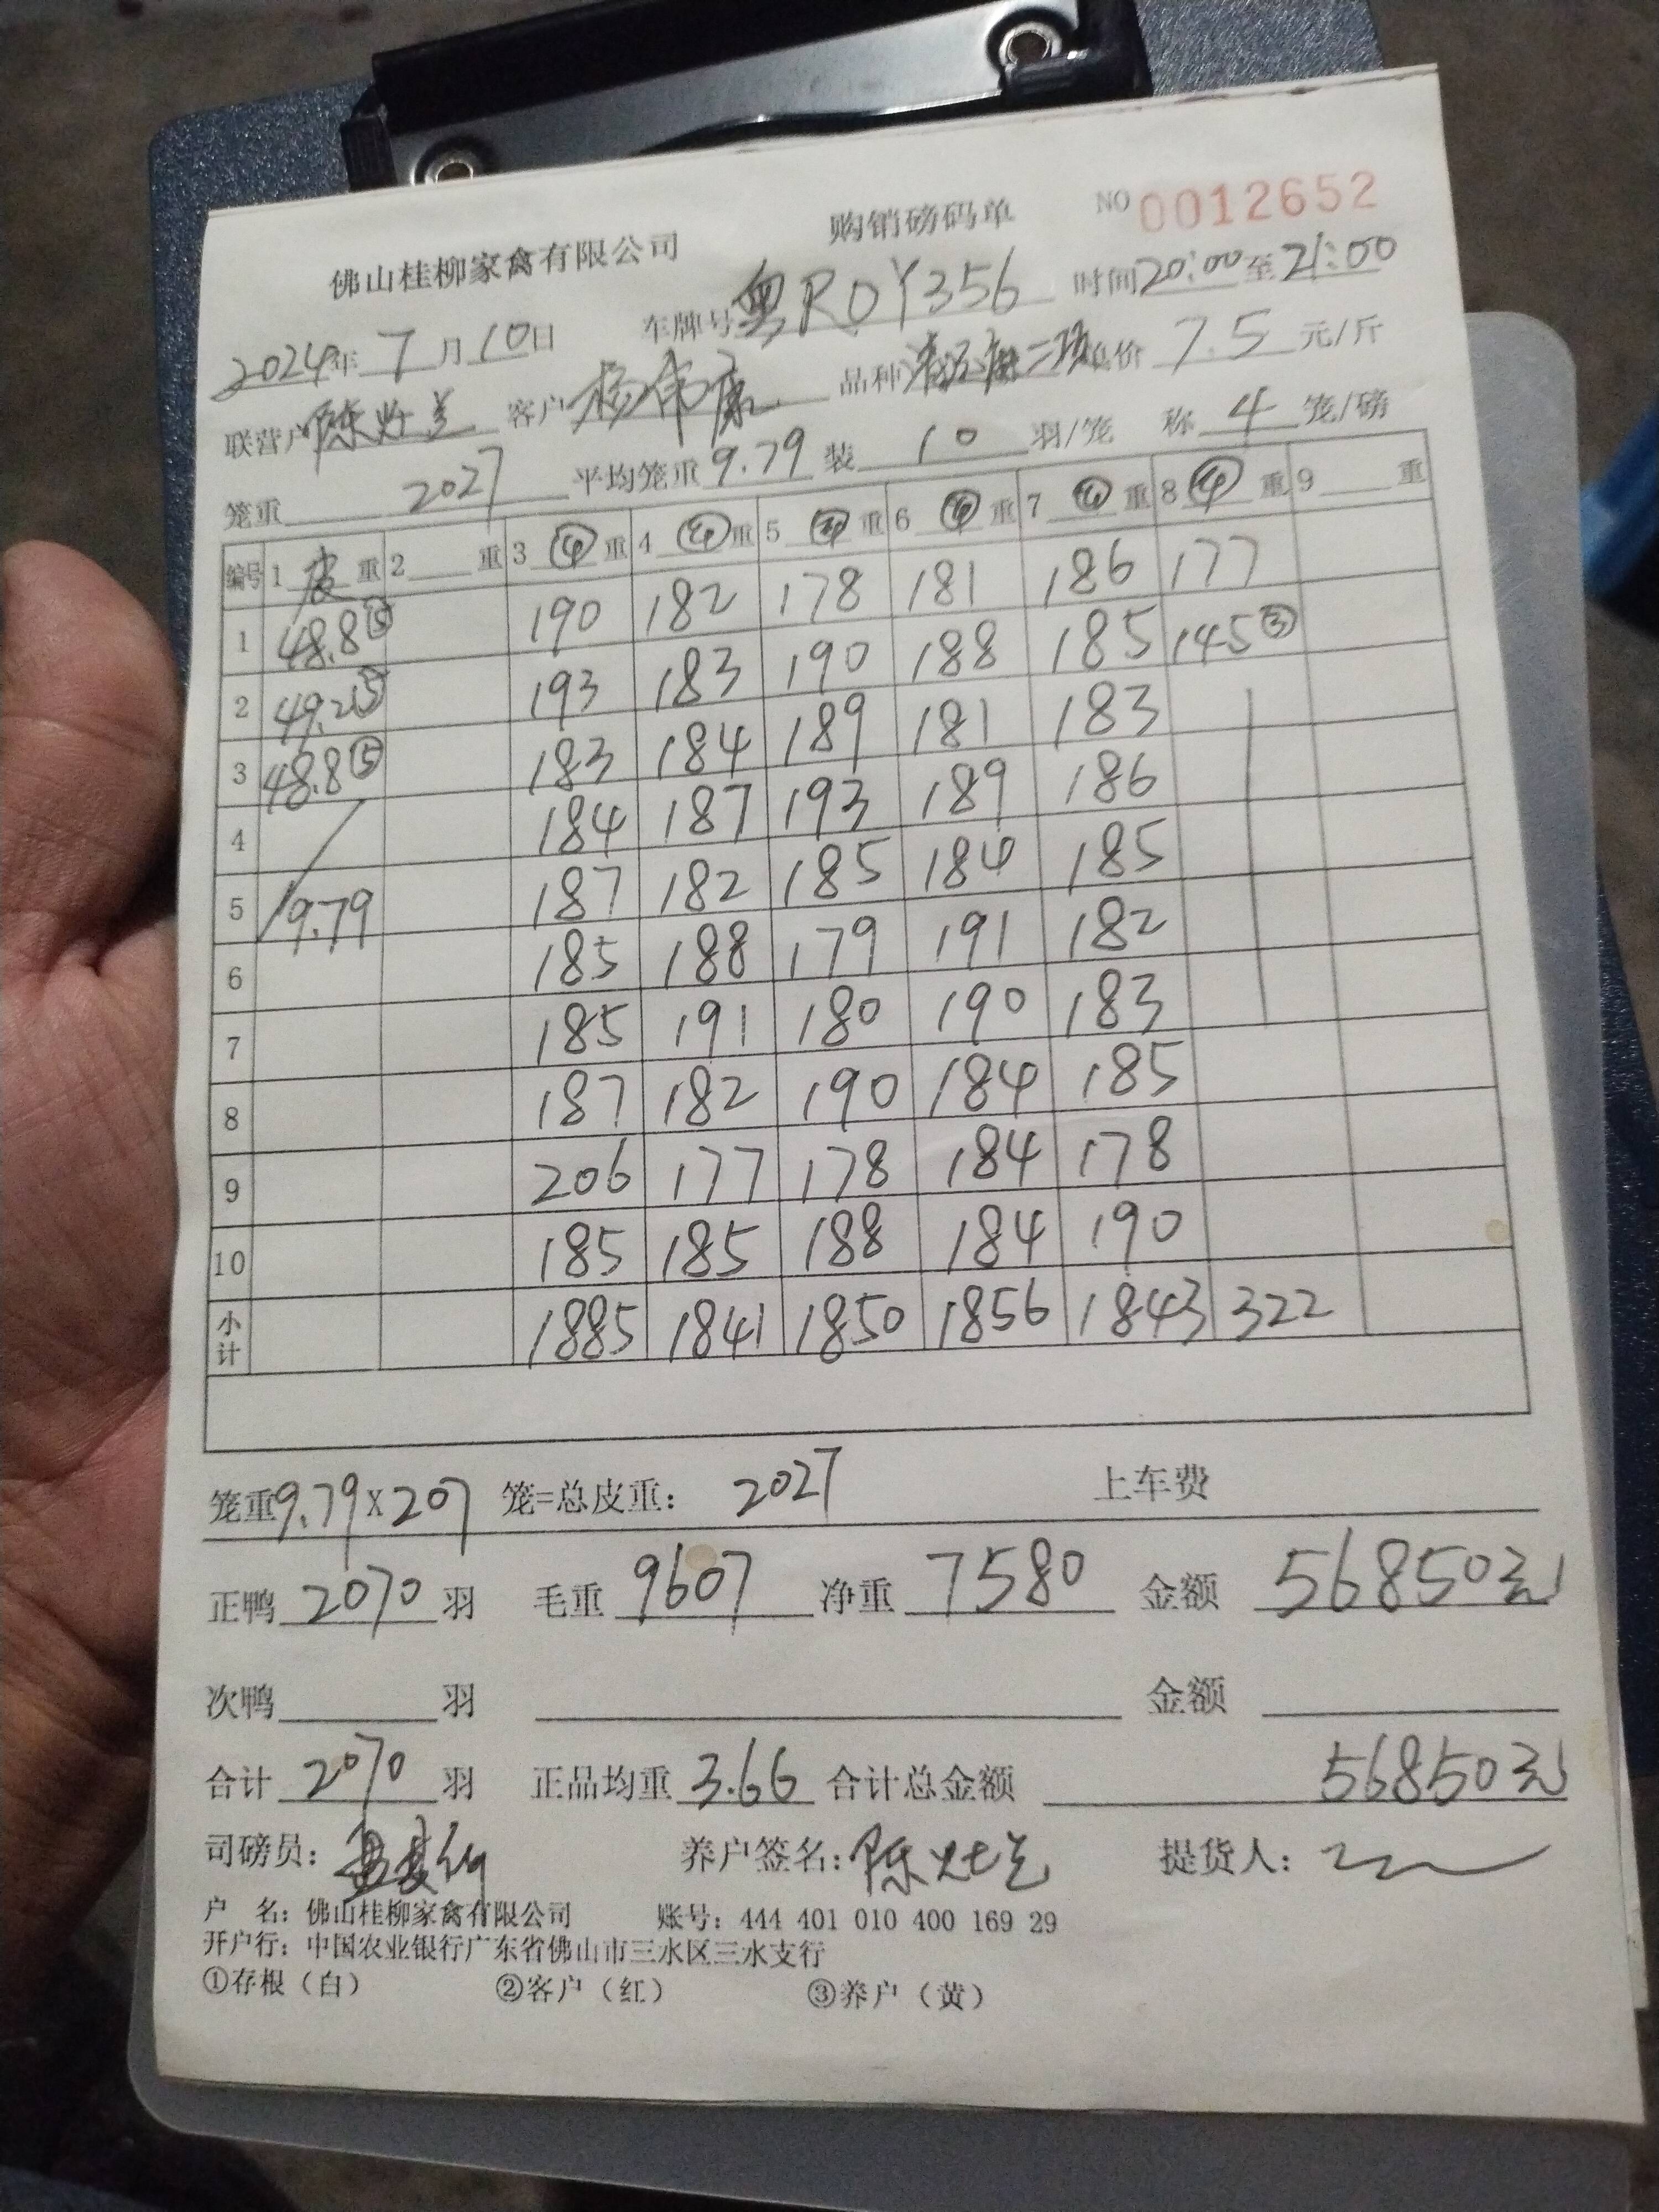 购销磅码单 NO 0012652
佛山桂柳家禽有限公司
2024年 7 月 10 日 车牌号 粤R0Y356 时间 20:00 至 21:00
联营户 陈灶兰 客户 杨伟康 品种 二项 单价 7.5 元/斤
笼重 2027 平均笼重 9.79 装 10 羽/笼 称 4 笼/磅
编号 1 皮 重 2 重 3 ④ 重 4 ④ 重 5 ④ 重 6 ④ 重 7 ④ 重 8 ④ 重 9 重
1 48.8⑤ 190 182 178 181 186 177
2 49.2⑤ 193 183 190 188 185 145③
3 48.8⑤ 183 184 189 181 183
4 184 187 193 189 186
5 9.79 187 182 185 184 185
6 185 188 179 191 182
7 185 191 180 190 183
8 187 182 190 184 185
9 206 177 178 184 178
10 185 185 188 184 190
小计 1885 1841 1850 1856 1843 322
笼重 9.79 X 207 笼=总皮重: 2027 上车费
正鸭 2070 羽 毛重 9607 净重 7580 金额 56850元
次鸭 羽 金额
合计 2070 羽 正品均重 3.66 合计总金额 56850元
司磅员: 养户签名: 陈灶兰 提货人:
户 名: 佛山桂柳家禽有限公司 账号: 444 401 010 400 169 29
开户行: 中国农业银行广东省佛山市三水区三水支行
①存根（白） ②客户（红） ③养户（黄）